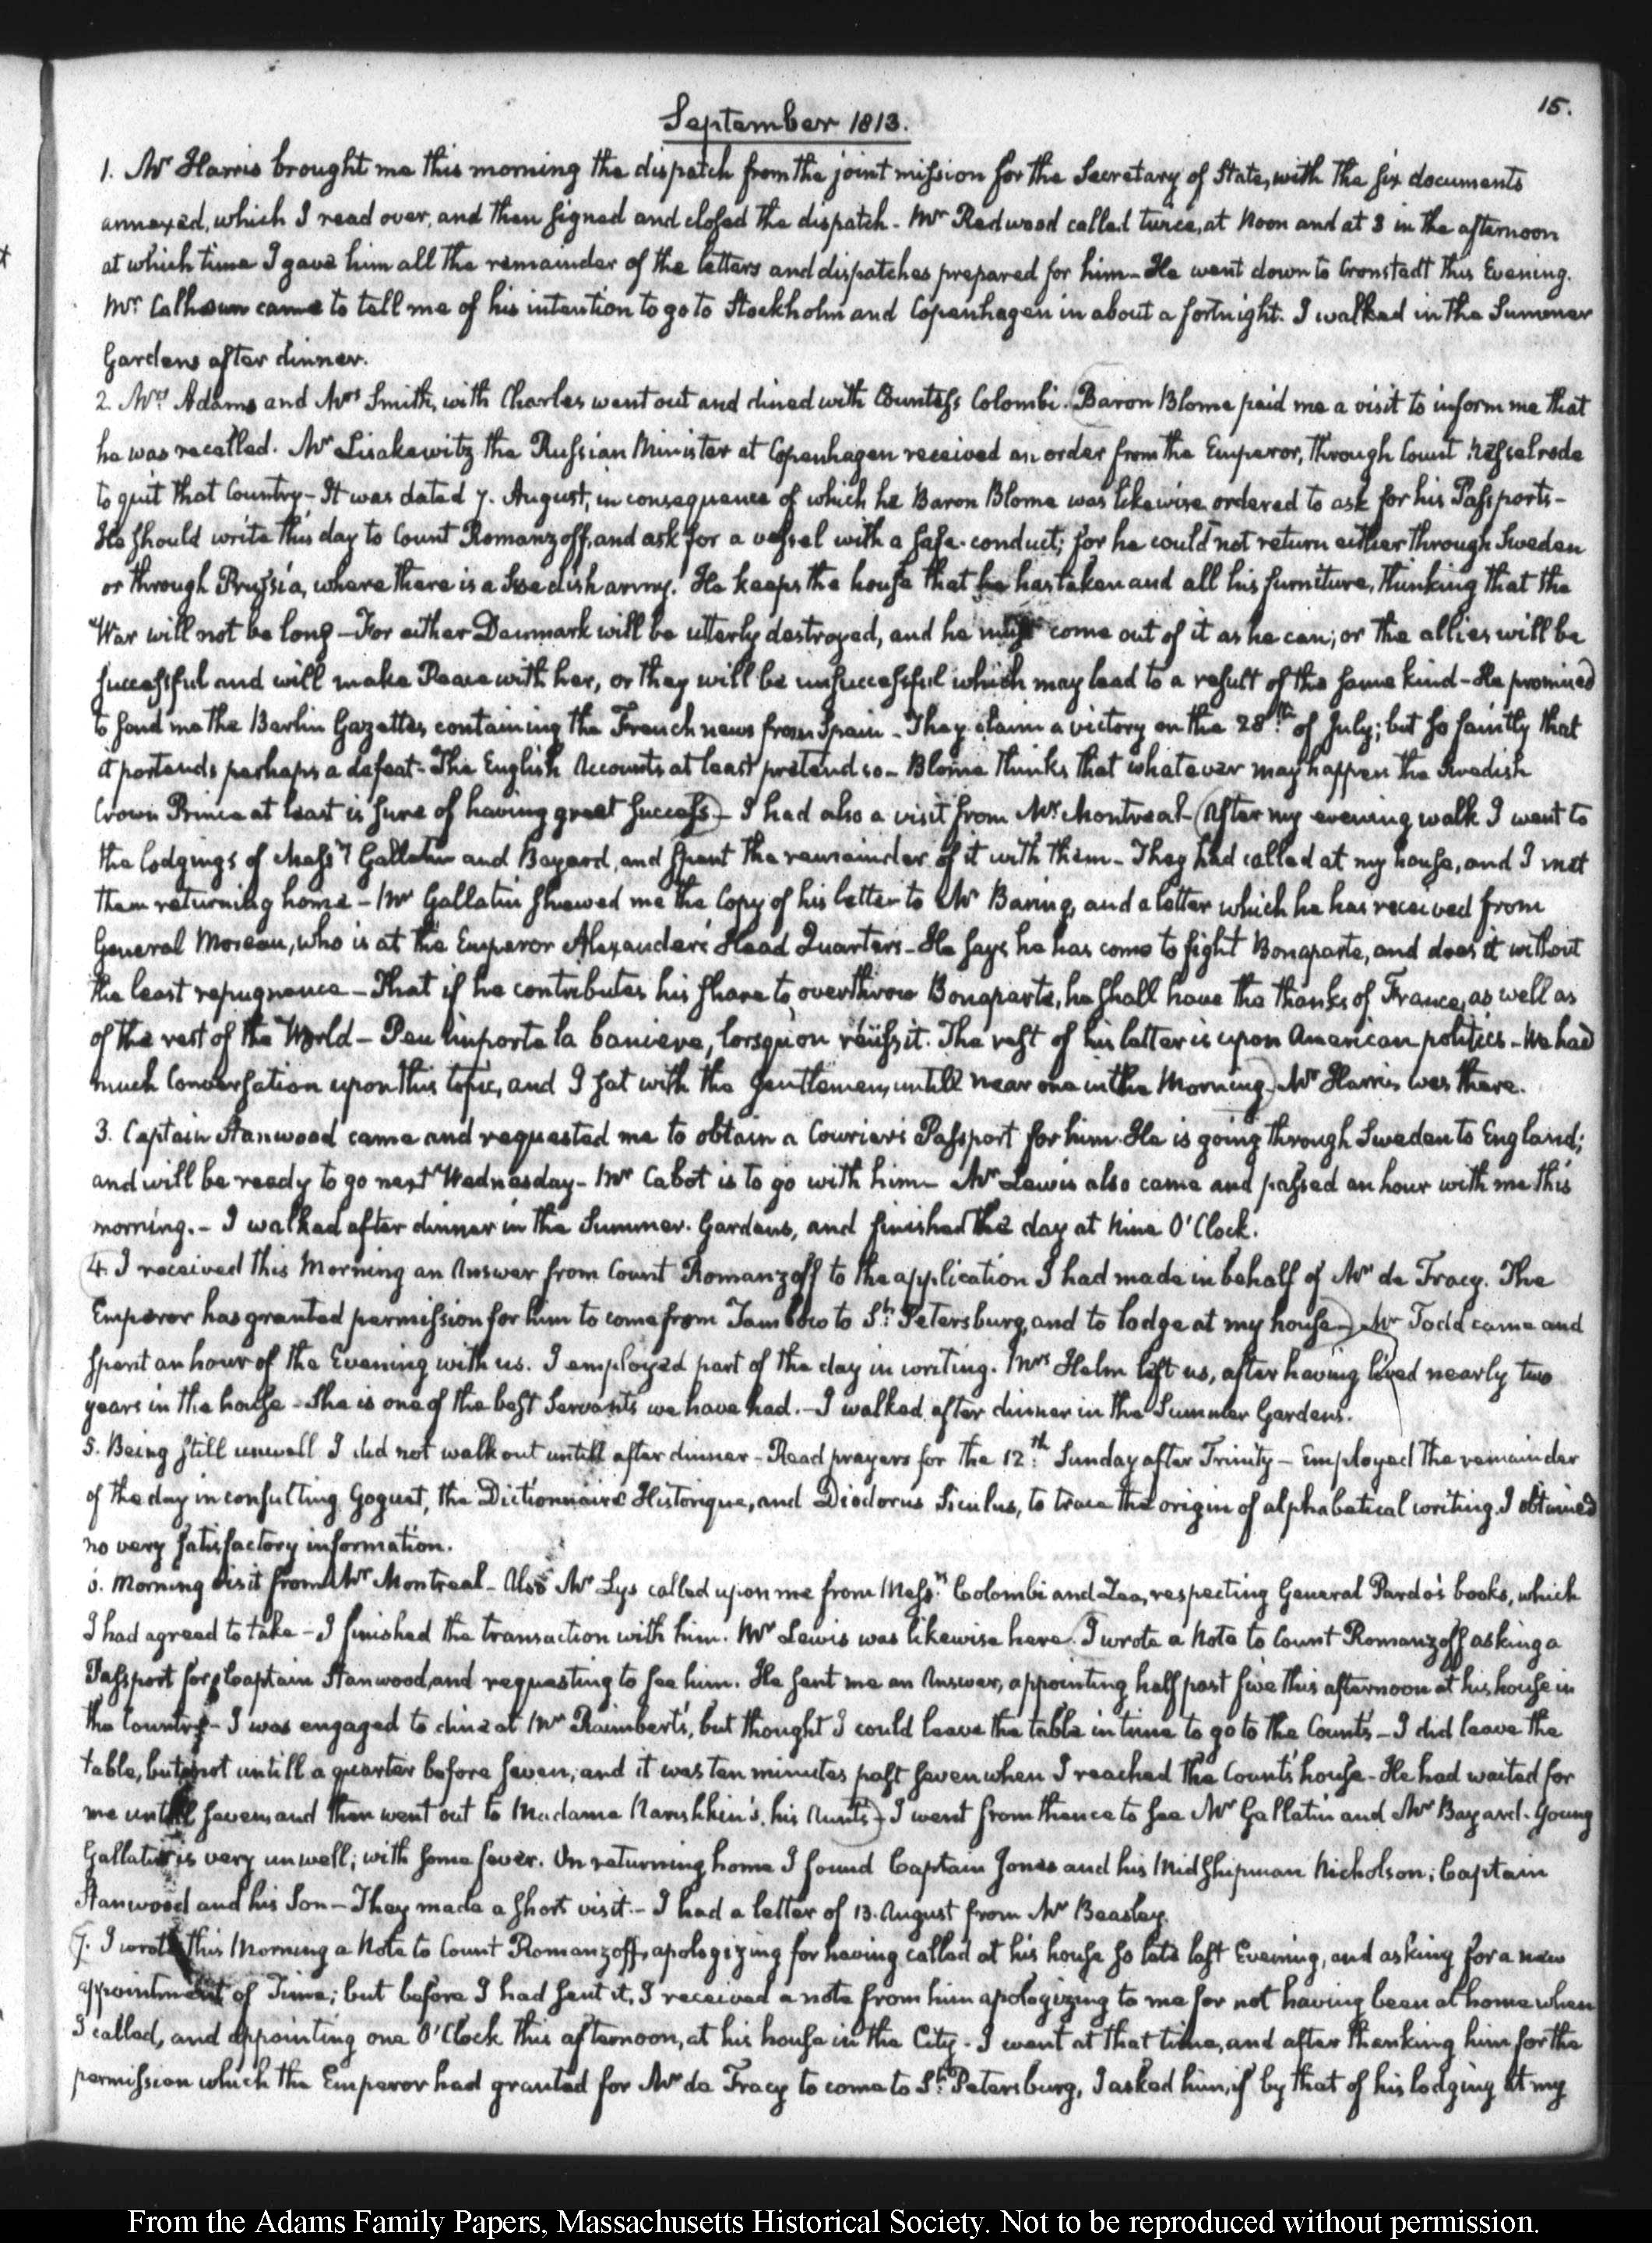 15.
September 1813.
1. Mr Harris brought me this morning the dispatch from the joint mission for the Secretary of State, with the six documents
annexed, which I read over, and then signed and closed the dispatch - Mr Redwood called twice, at Noon and at 3 in the afternoon
at which time I gave him all the remainder of the letters and dispatches prepared for him - He went down to Cronstadt this Evening.
Mr Calhoun came to tell me of his intention to go to Stockholm and Copenhagen in about a fortnight. I walked in the Summer
Gardens after dinner.
2. Mrs Adams and Mrs Smith, with Charles went out and dined with Countess Colombi. Baron Blome paid me a visit to inform me that
he was recalled. Mr Lisakewitz the Russian Minister at Copenhagen received an order from the Emperor, through Count Nesselrode
to quit that Country - It was dated 7. August, in consequence of which he Baron Blome was likewise ordered to ask for his Passports -
He should write this day to Count Romanzoff, and ask for a vessel with a safe-conduct; for he could not return either through Sweden
or through Prussia, where there is a Swedish army. He keeps the house that he has taken and all his furniture, thinking that the
War will not be long - For either Denmark will be utterly destroyed, and he must come out of it as he can; or the allies will be
successful and will make Peace with her, or they will be unsuccessful which may lead to a result of the same kind - He promised
to send me the Berlin Gazettes containing the French news from Spain - They claim a victory on the 28th of July; but so faintly that
it portends perhaps a defeat - The English Accounts at least pretend so - Blome thinks that whatever may happen the Swedish
Crown Prince at least is sure of having great success) - I had also a visit from Mr Montreal - (After my evening walk I went to
the lodgings of Messrs Gallatin and Bayard, and spent the remainder of it with them - They had called at my house, and I met
them returning home - Mr Gallatin shewed me the Copy of his letter to Mr Baring, and a letter which he has received from
General Moreau, who is at the Emperor Alexander's Head Quarters - He says he has come to fight Bonaparte, and does it without
the least repugnance - That if he contributes his share to overthrow Bonaparte, he shall have the thanks of France, as well as
of the rest of the World - Peu importe la baniere, lorsqu'on réussit. The rest of his letter is upon American politics - We had
much Conversation upon this topic, and I sat with the Gentlemen, untill near one in the Morning) Mr Harris was there.
3. Captain Stanwood came and requested me to obtain a Courier's Passport for him. He is going through Sweden to England;
and will be ready to go next Wednesday - Mr Cabot is to go with him - Mr Lewis also came and passed an hour with me this
morning. - I walked after dinner in the Summer Gardens, and finished the day at Nine O'Clock.
(4. I received this Morning an Answer from Count Romanzoff to the application I had made in behalf of Mr de Tracy. The
Emperor has granted permission for him to come from Tambow to St Petersburg, and to lodge at my house -) Mr Todd came and
spent an hour of the Evening with us. I employed part of the day in writing. Mrs Helm left us, after having lived nearly two
years in the house - She is one of the best Servants we have had. - I walked after dinner in the Summer Gardens.
5. Being still unwell I did not walk out untill after dinner - Read prayers for the 12th Sunday after Trinity - Employed the remainder
of the day in consulting Goguet, the Dictionnaire Historique, and Diodorus Siculus, to trace the origin of alphabetical writing. I obtained
no very satisfactory information.
6. Morning visit from Mr Montreal - Also Mr Lys called upon me from Messrs Colombi and Zea, respecting General Pardo's books, which
I had agreed to take - I finished the transaction with him. Mr Lewis was likewise here. (I wrote a Note to Count Romanzoff asking a
Passport for Captain Stanwood, and requesting to see him. He sent me an Answer, appointing half past five this afternoon at his house in
the Country - I was engaged to dine at Mr Raimbert's, but thought I could leave the table in time to go to the Count's - I did leave the
table, but not untill a quarter before seven; and it was ten minutes past seven when I reached the Count's house - He had waited for
me untill seven, and then went out to Madame Narishkin's, his Aunt's) - I went from thence to see Mr Gallatin and Mr Bayard. Young
Gallatin is very unwell; with some fever. On returning home I found Captain Jones and his Midshipman Nicholson; Captain
Stanwood and his Son - They made a short visit. - I had a letter of 13. August from Mr Beasley.
(7. I wrote this Morning a Note to Count Romanzoff, apologizing for having called at his house so late last Evening, and asking for a new
appointment of Time; but before I had sent it, I received a note from him apologizing to me for not having been at home when
I called, and appointing one O'Clock this afternoon, at his house in the City - I went at that time, and after thanking him for the
permission which the Emperor had granted for Mr de Tracy to come to St Petersburg, I asked him, if by that of his lodging at my
From the Adams Family Papers, Massachusetts Historical Society. Not to be reproduced without permission.